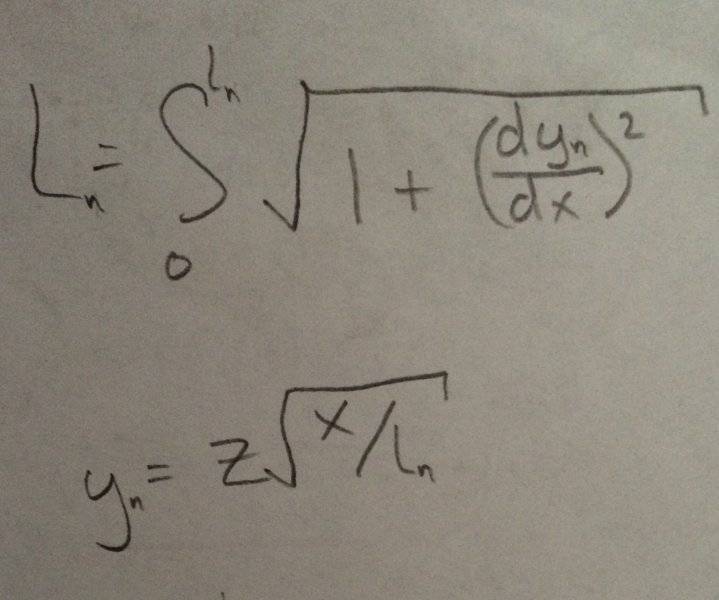 Lₙ = ∫₀^{lₙ} √(1 + (dyₙ/dx)²)
yₙ = z√(x/lₙ)